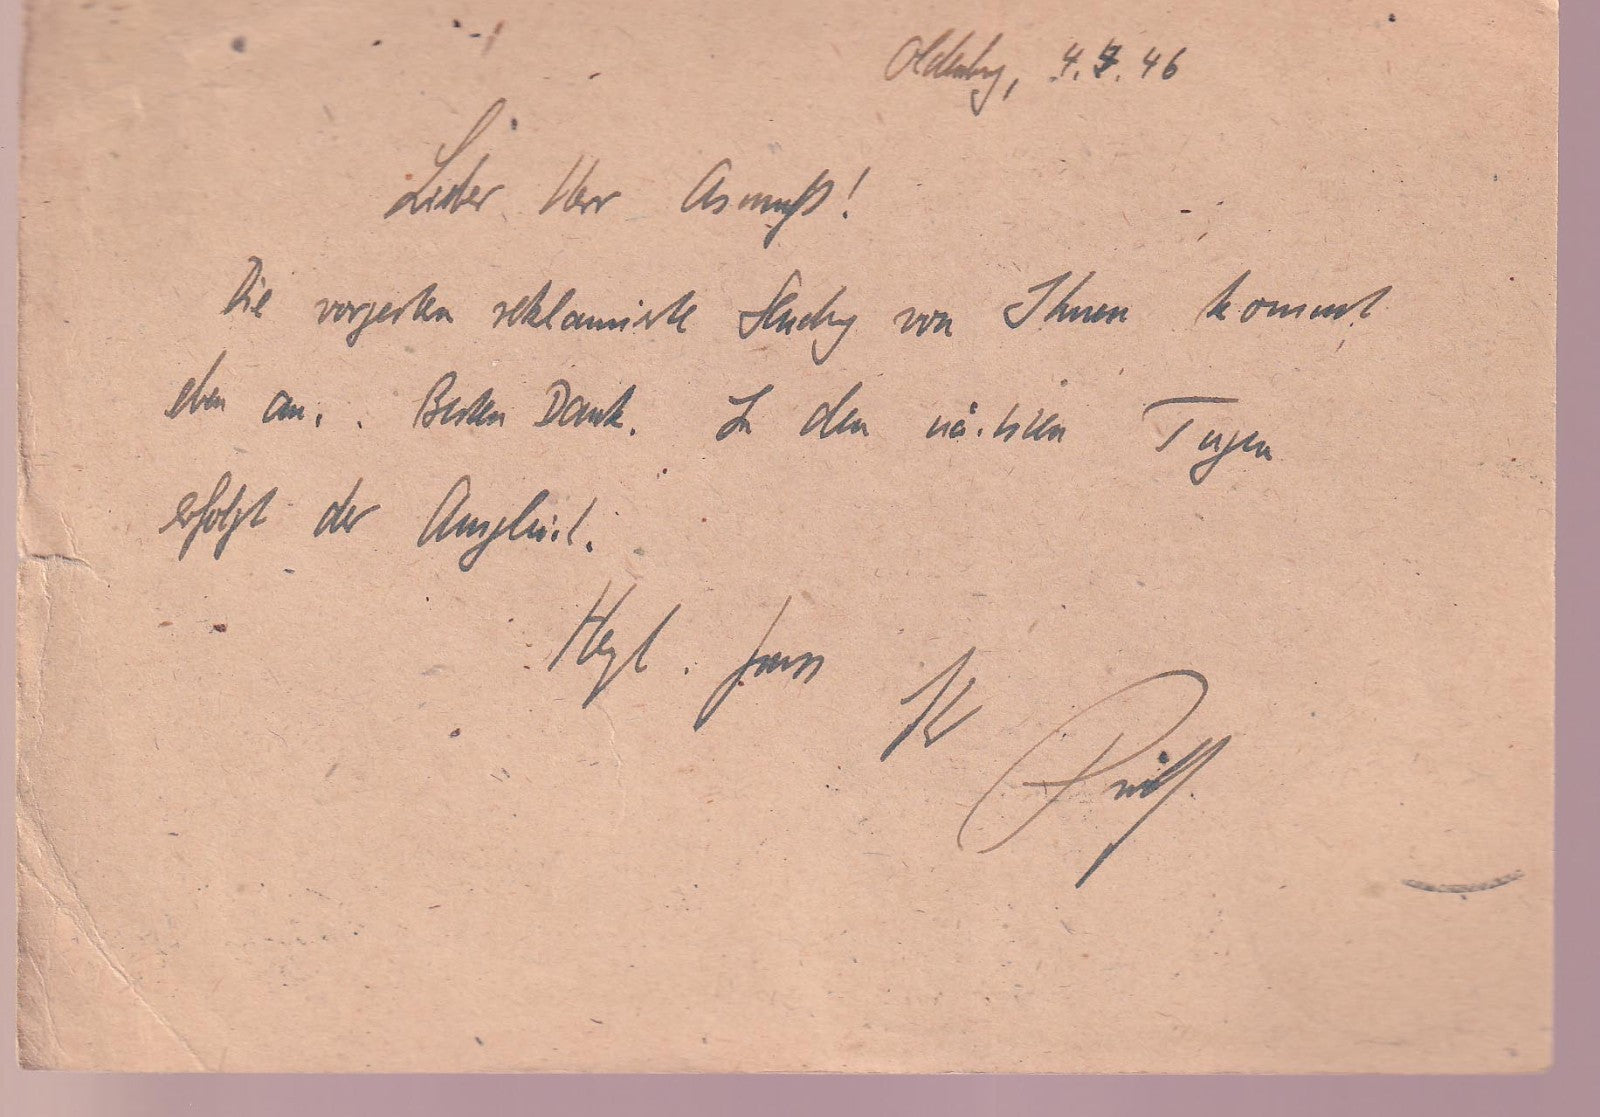 Oldenburg, 4.9.46
Lieber Herr Asmuß!
Die vorgestern reklamierte Sendung von Ihnen kommt
eben an. Besten Dank. In den nächsten Tagen
erfolgt der Ausgleich.
Herzl. Gruss
Ihr